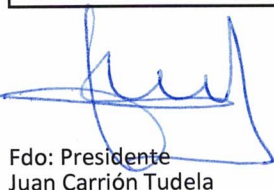 Fdo: Presidente
Juan Carrión Tudela